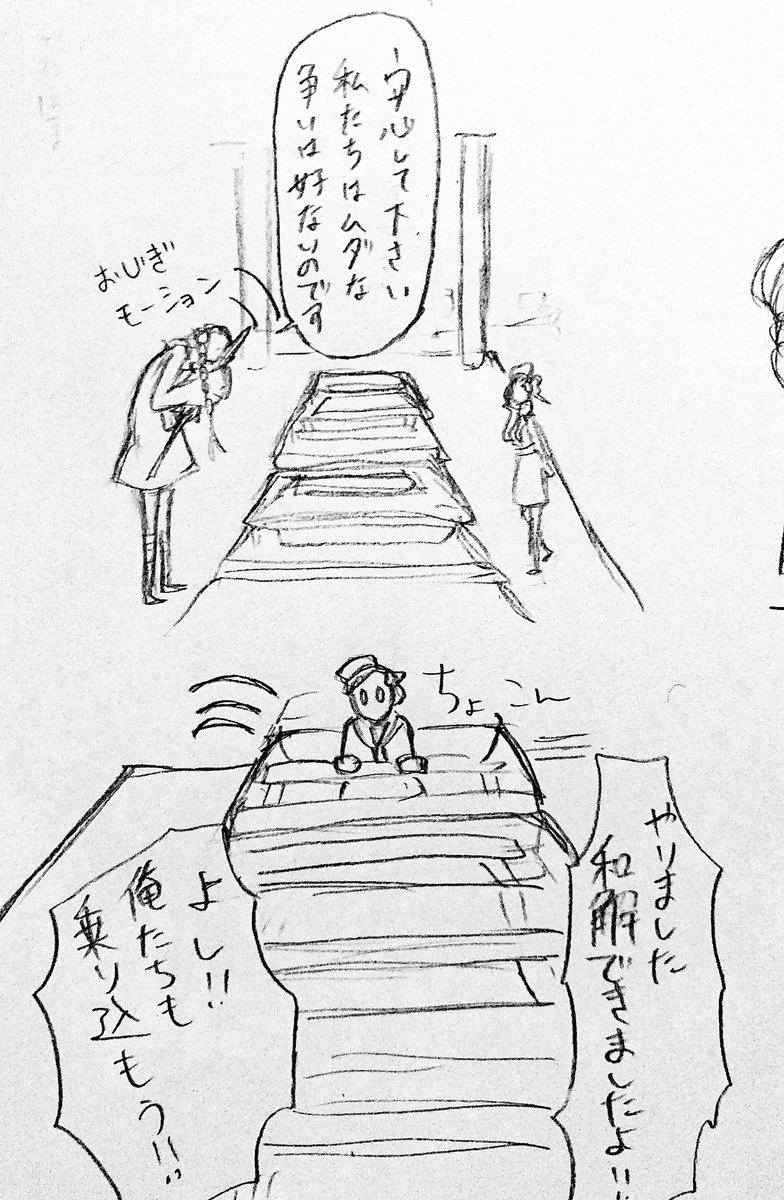 安心して下さい
私たちはムダな
争いは好ないのです
おじぎ
モーション
ちょこん
やりました
和解できましたよ!!
よし!!
俺たちも
乗り込もう!!